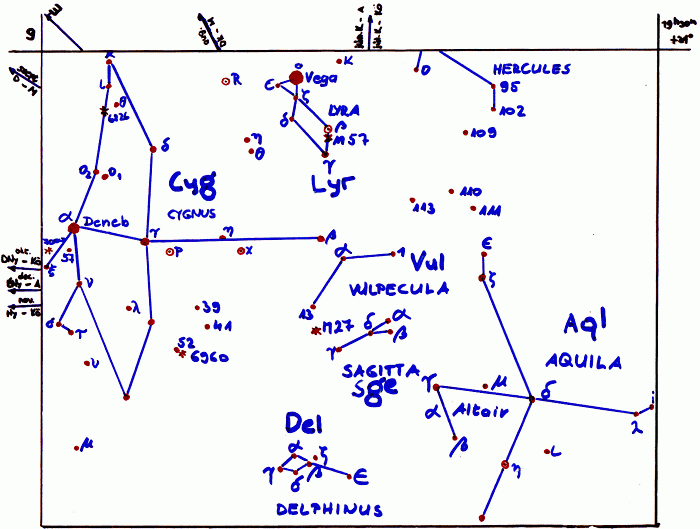 9
19h30m
+21°
κ
ι
θ
6826
R
ο
Vega
ε
ζ
κ
LYRA
δ
β
M57
γ
Lyr
θ
HERCULES
95
102
109
110
111
113
δ
η
θ
Cyg
CYGNUS
ο2
ο1
α
Deneb
γ
η
β
P
X
57
ξ
ν
σ
τ
υ
λ
39
41
52
6960
μ
α
1
Vul
VULPECULA
13
M27
α
δ
β
γ
SAGITTA
Sge
ε
ζ
Aql
AQUILA
γ
μ
δ
α
Altair
β
λ
i
ι
η
Del
α
ζ
γ
δ
β
ε
DELPHINUS